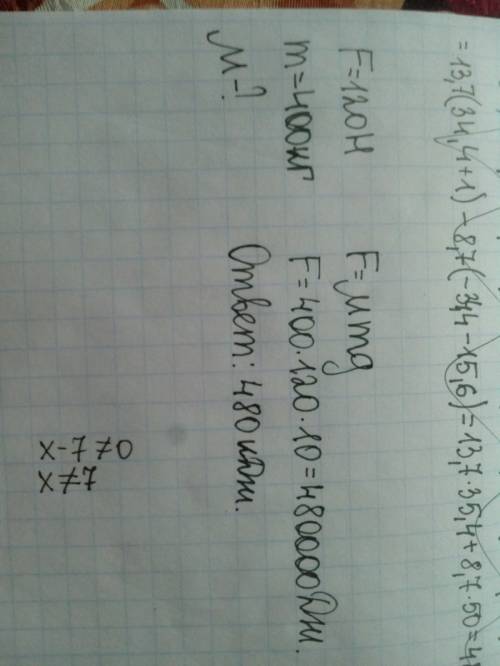 = 13,7(34,4+1) - 8,7(-34,4-15,6) = 13,7·35,4 + 8,7·50 = 4
F=120Н
m=400кг
M-?
F=Mmg
F=400·120·10=480000Дж.
Ответ: 480кДж.
x-7≠0
x≠7